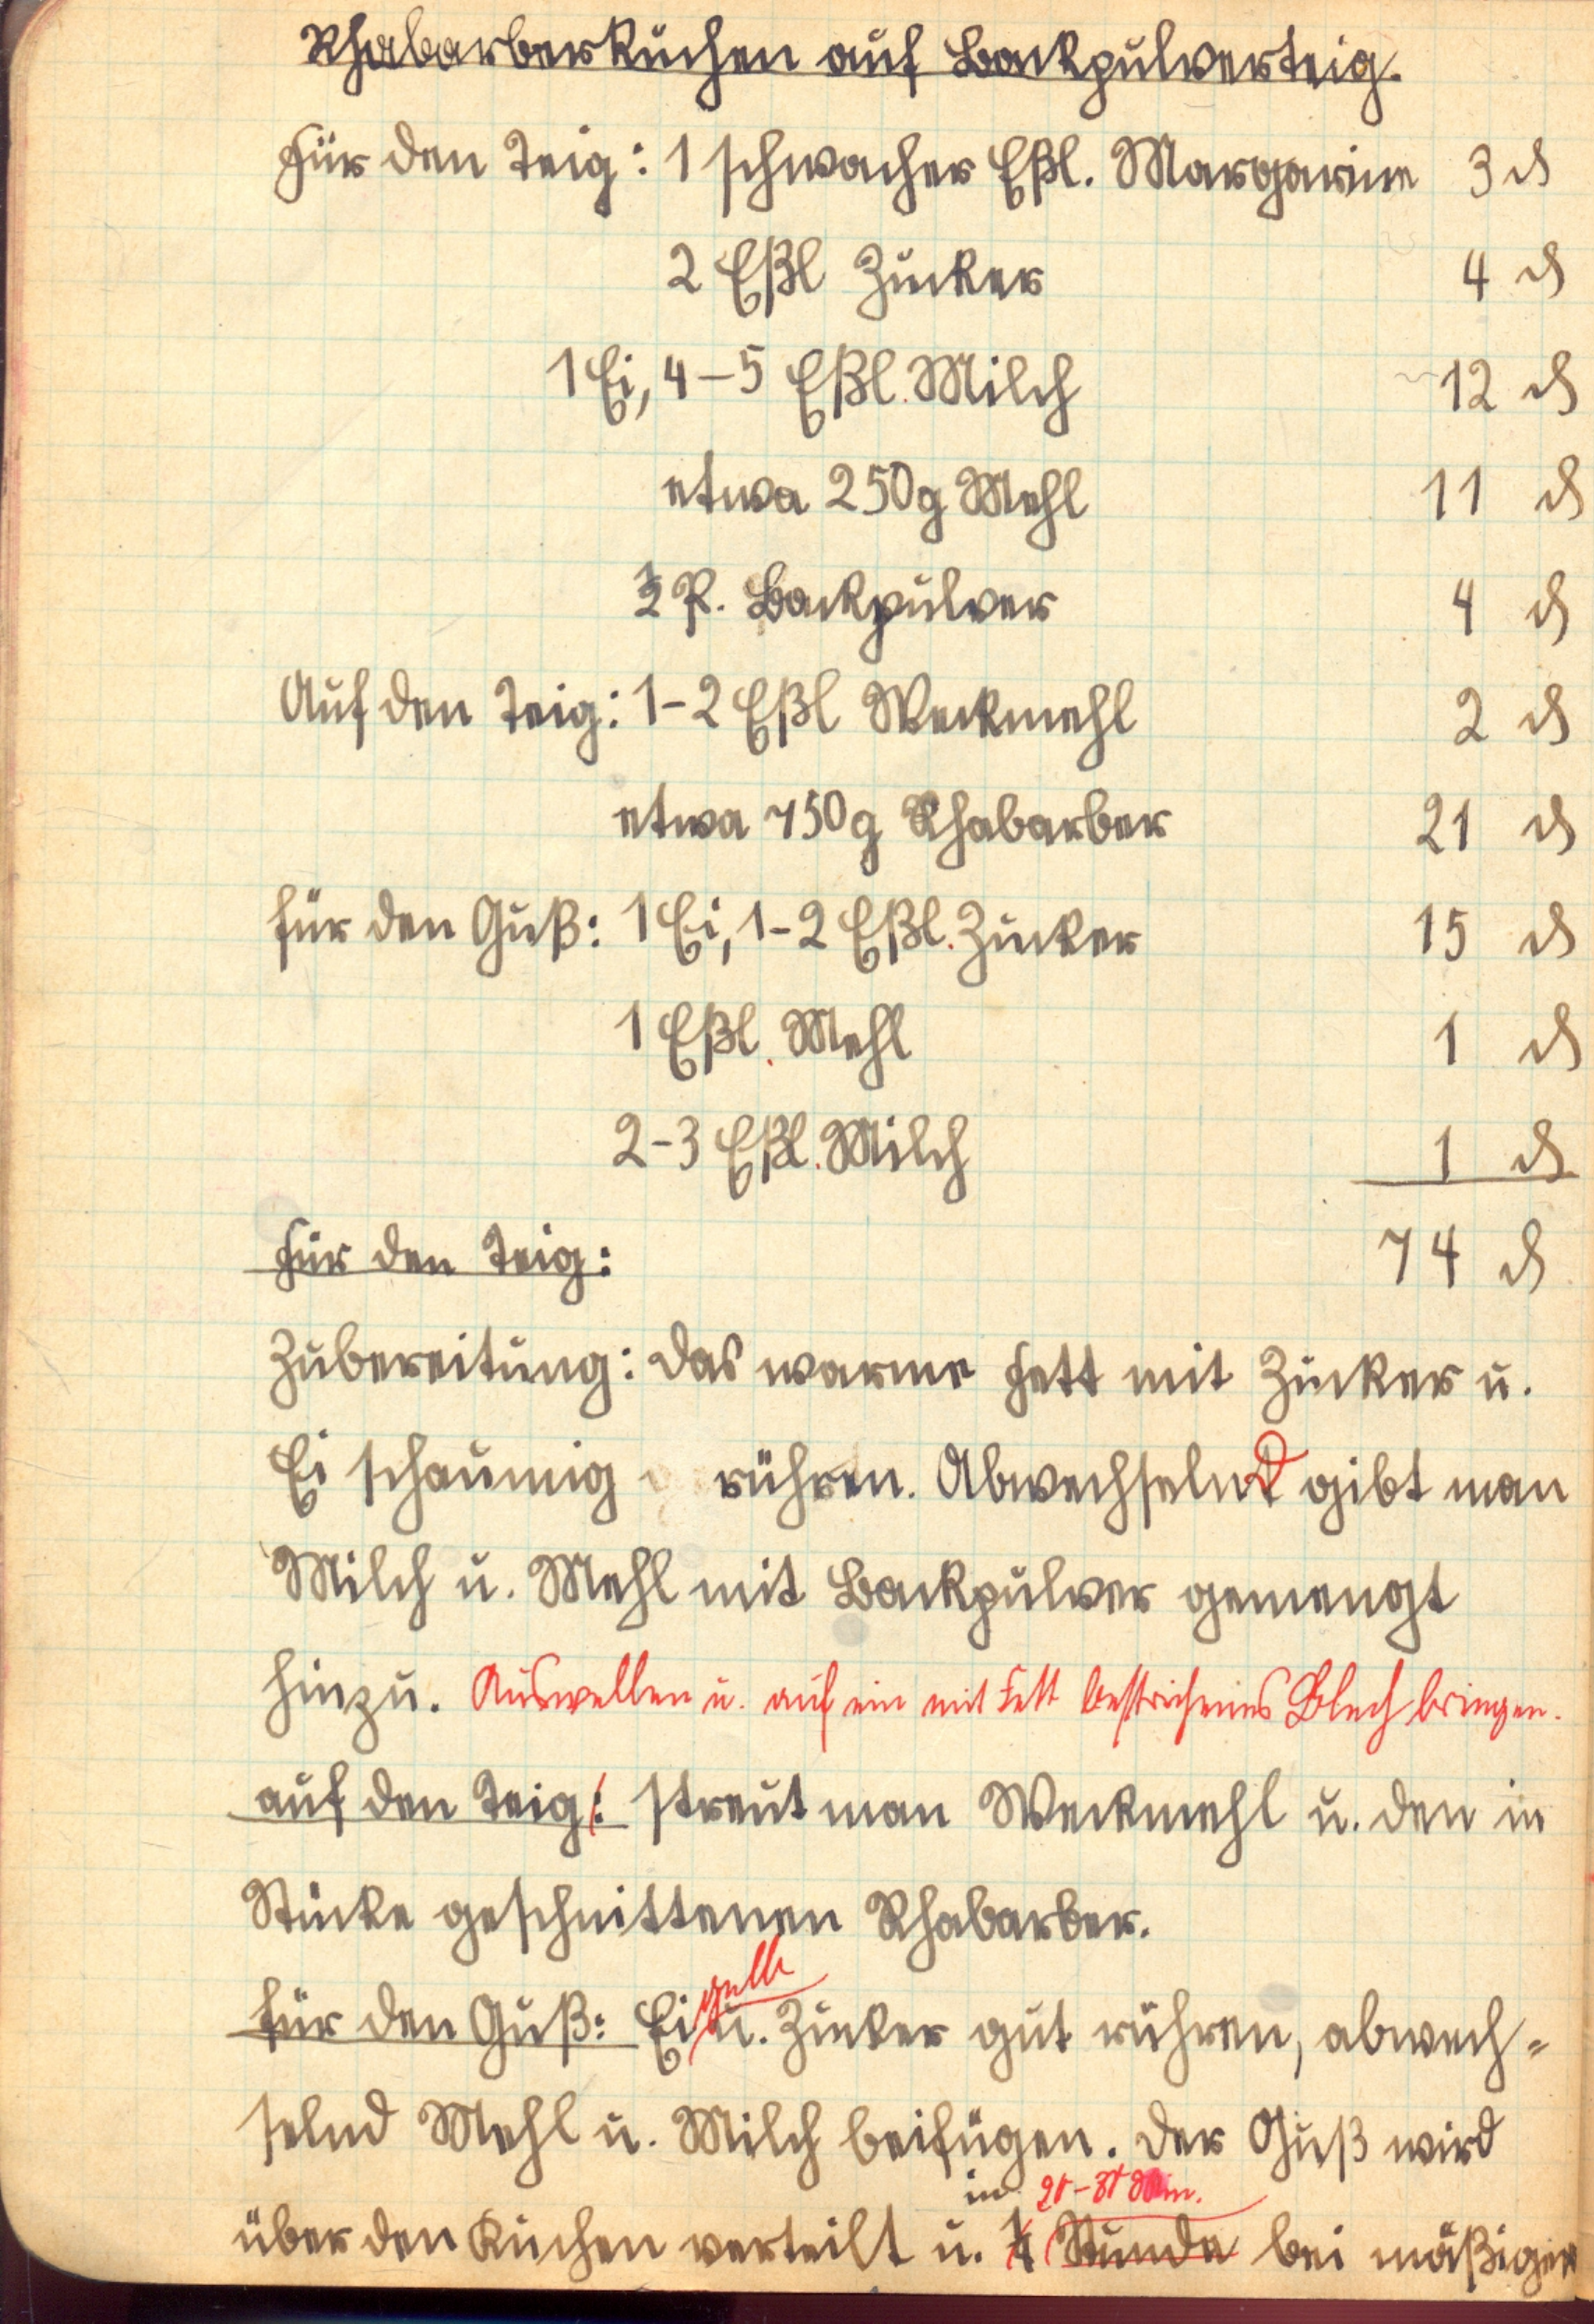 Rhabarberkuchen auf Backpulverteig.
Für den Teig: 1 schwacher Eßl. Margarine 3 ₰
2 Eßl Zucker 4 ₰
1 Ei, 4-5 Eßl. Milch 12 ₰
etwa 250g Mehl 11 ₰
½ P. Backpulver 4 ₰
Auf den Teig: 1-2 Eßl Weckmehl 2 ₰
etwa 750g Rhabarber 21 ₰
für den Guß: 1 Ei, 1-2 Eßl. Zucker 15 ₰
1 Eßl. Mehl 1 ₰
2-3 Eßl. Milch 1 ₰
74 ₰
Für den Teig:
Zubereitung: Das warme Fett mit Zucker u.
Ei schaumig rühren. Abwechselnd gibt man
Milch u. Mehl mit Backpulver gemengt
hinzu. Auswellen u. auf ein mit Fett bestrichenes Blech bringen.
auf den Teig: streut man Weckmehl u. den in
Stücke geschnittenen Rhabarber.
gelb
für den Guß: Ei u. Zucker gut rühren, abwech=
selnd Mehl u. Milch beifügen. Der Guß wird
in 20-30 Min.
über den Kuchen verteilt u. Stunde bei mäßiger